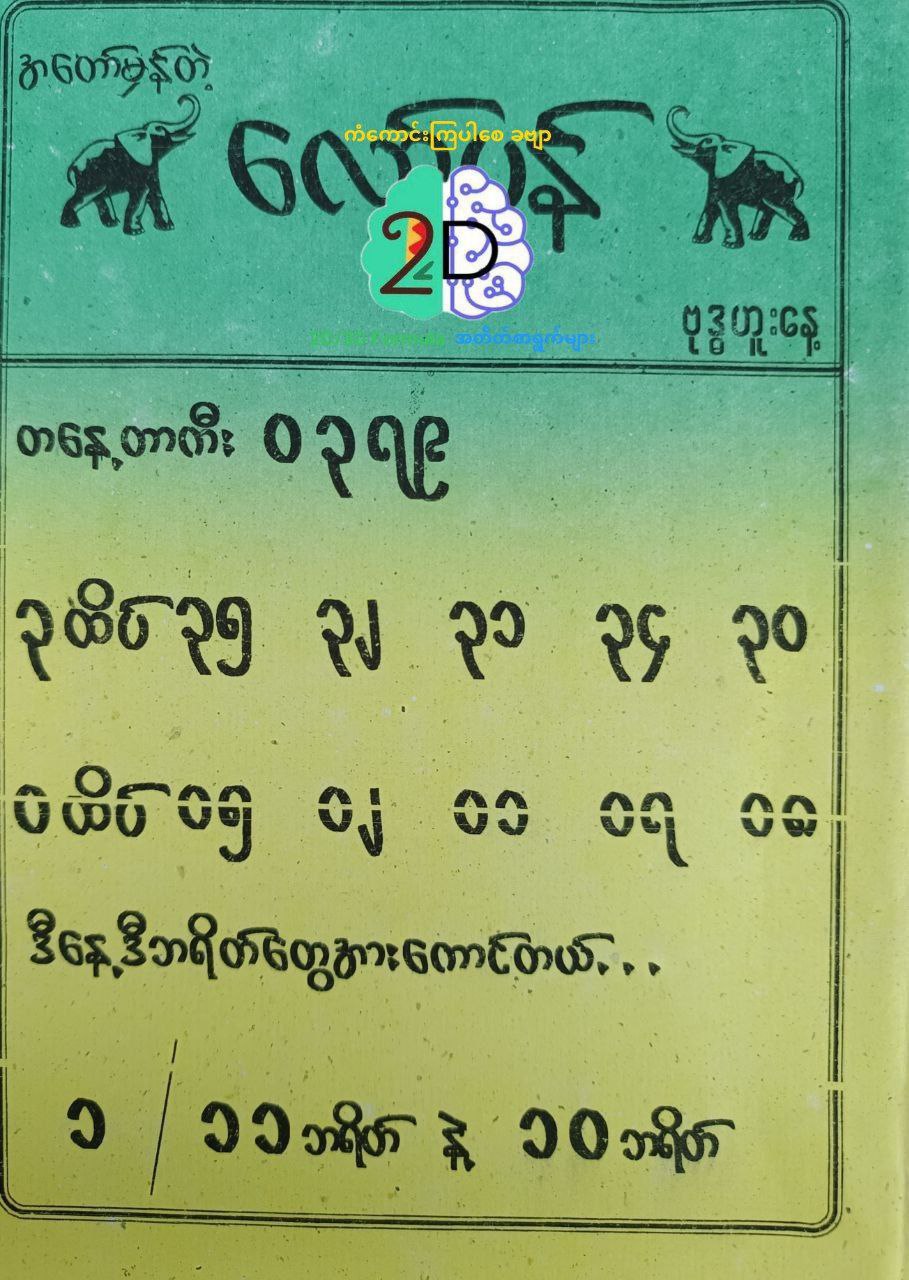 အတော်မှန်တဲ့
ကံကောင်းကြပါစေ ခဗျာ
2D
အတိတ်စာရွက်များ
ဗုဒ္ဓဟူးနေ့
တနေ့တာကီး ၀ ၃ ၇ ၉
၃ ထိပ် ၃၅ ၃၂ ၃၁ ၃၄ ၃၀
၀ ထိပ် ၀၅ ၀၂ ၀၁ ၀၇ ၀၈
ဒီနေ့ဒီဘရိတ်တွေအားကောင်တယ်...
၁ / ၁၁ ဘရိတ် နဲ့ ၁၀ ဘရိတ်